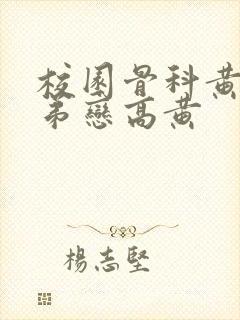 校園骨科黃
弟戀高黃
楊志堅